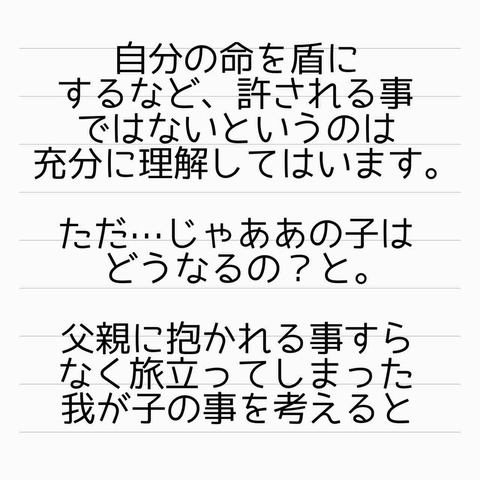 自分の命を盾に
するなど、許される事
ではないというのは
充分に理解してはいます。
ただ…じゃああの子は
どうなるの？と。
父親に抱かれる事すら
なく旅立ってしまった
我が子の事を考えると